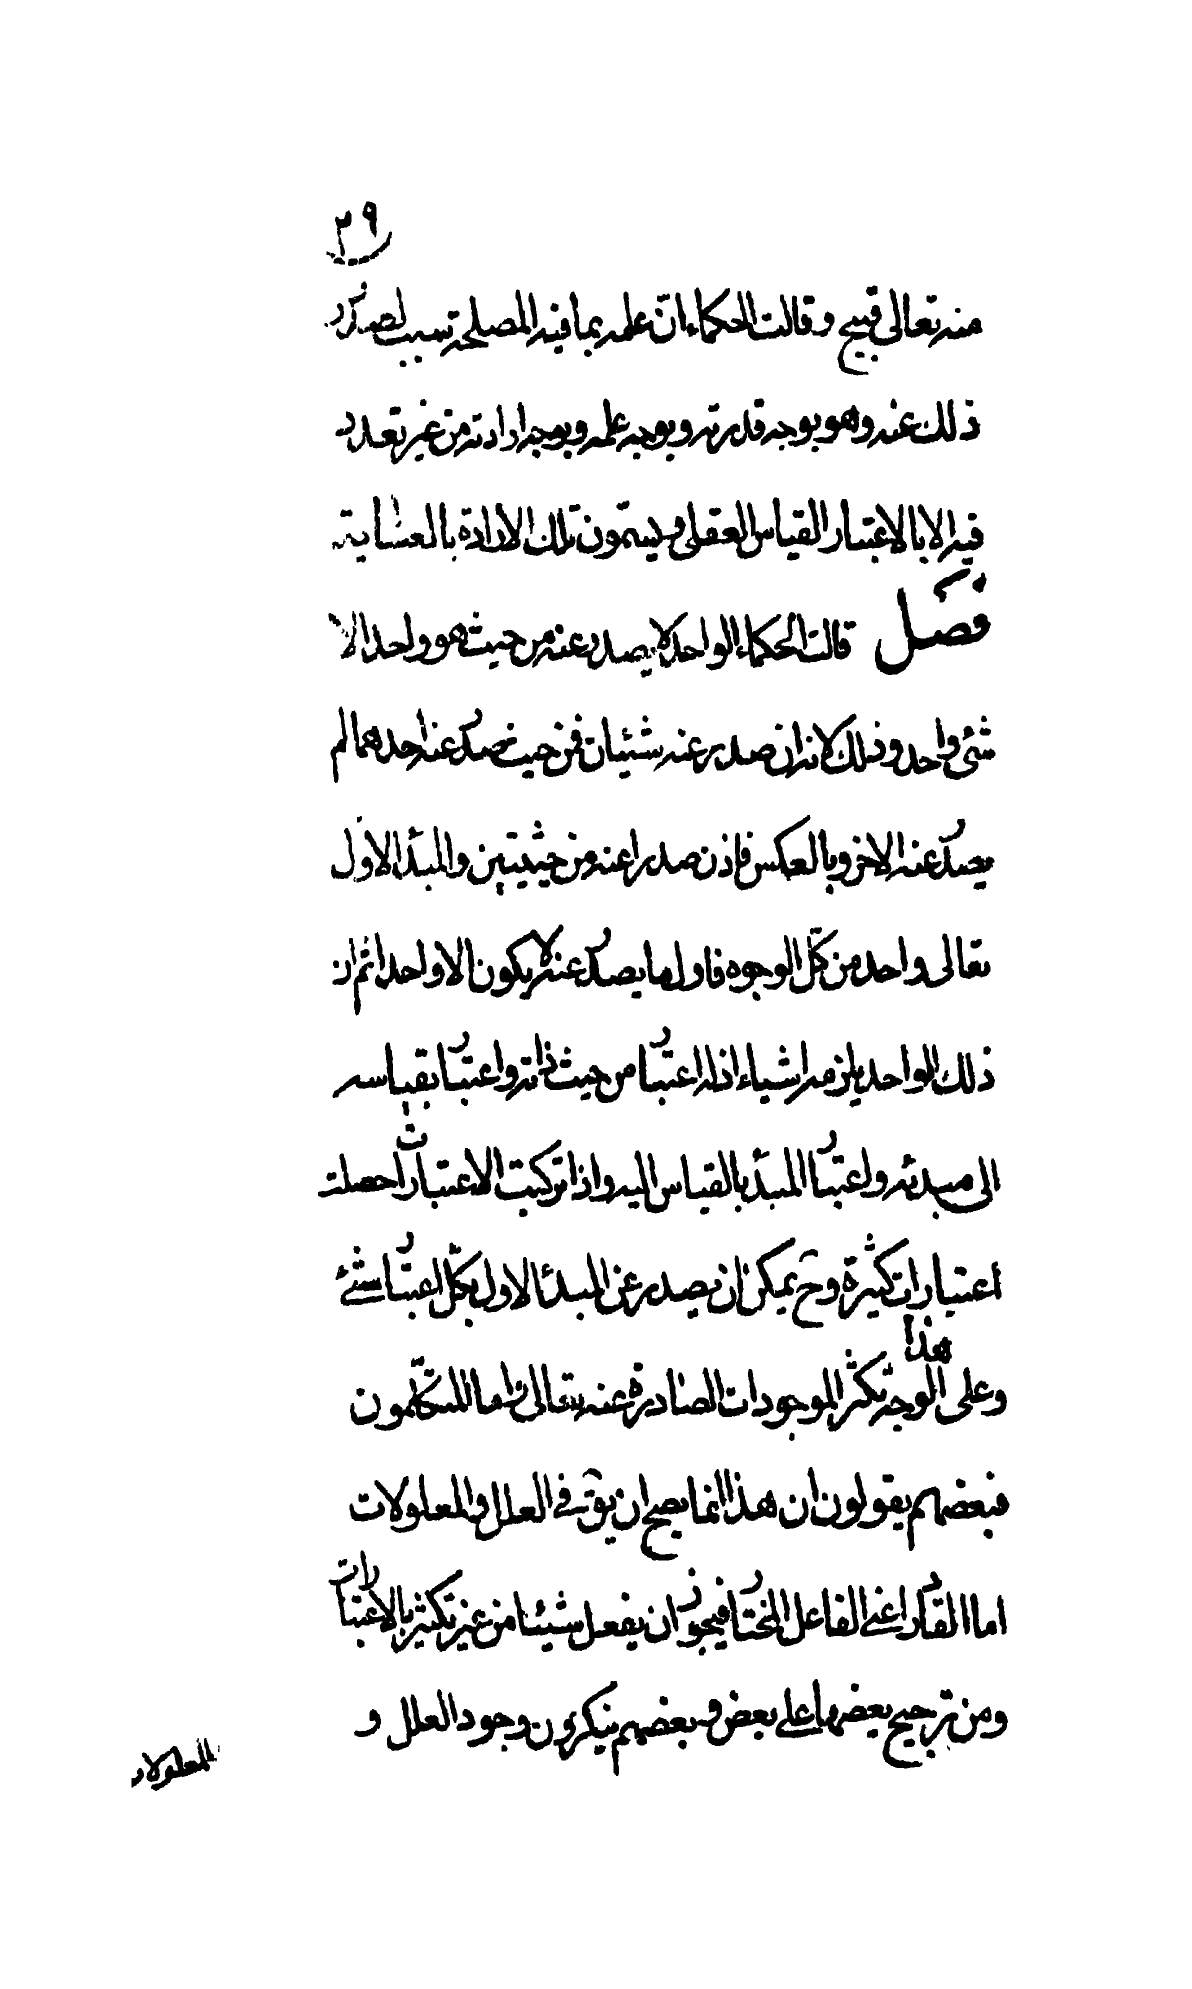 ٢٩
منه تعالى قبيح وقالت الحكماء ان علمه بما فيه المصلحة سبب لصدور
ذلك عنه وهو بوجه قدرته وبوجه علمه وبوجه ارادته من غير تعدد
فيه الا بالاعتبار القياس العقلى ويسمون تلك الارادة بالعناية
فصل قالت الحكماء الواحد لا يصدر عنه من حيث هو واحد الا
شئ واحد وذلك لانه ان صدر عنه شيئان فمن حيث صدر عنه احدهما لم
يصدر عنه الاخر وبالعكس فاذن صدرا عنه من حيثيتين والمبدأ الاول
تعالى واحد من كل الوجوه فاول ما يصدر عنه لا يكون الا واحدا ثم ان
ذلك الواحد يلزمه اشياء اذ له اعتبار من حيث ذاته واعتبار بقياسه
الى مبدئه واعتبار المبدأ بالقياس اليه واذا تركبت الاعتبارات حصلت
اعتبارات كثيرة وح يمكن ان يصدر عن المبدأ الاول بكل اعتبار شئ
وعلى هذا الوجه تكثر الموجودات الصادرة عنه تعالى اما المتكلمون
فبعضهم يقولون ان هذا انما يصح ان يق فى العلل والمعلولات
اما القادر اعنى الفاعل المختار فيجوز ان يفعل شيئا من غير تكثر بالاعتبارات
ومن ترجيح بعضها على بعض وبعضهم ينكرون وجود العلل و
المعلولات